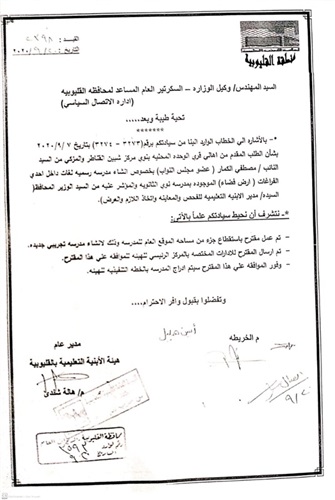 القيد: ٤٣٩٨
التاريخ: ٢٠٢٠/٩/
منطقة القليوبية
السيد المهندس/ وكيل الوزاره – السكرتير العام المساعد لمحافظه القليوبية
(اداره الاتصال السياسي)
تحية طيبة وبعد...
*******
*- بالأشاره الي الخطاب الوارد الينا من سيادتكم برقم (٣٢٧٣ - ٣٢٧٤) بتاريخ ٢٠٢٠/٩/٧
بشأن الطلب المقدم من اهالي قرى الوحده المحليه بنوي مركز شبين القناطر والمزكي من السيد
النائب / مصطفي الكمار ( عضو مجلس النواب) بخصوص انشاء مدرسه رسميه لغات داخل احدي
الفراغات ( ارض فضاء) الموجوده بمدرسه نوي الثانويه والمؤشر عليه من السيد الوزير المحافظ(
السيده/ مدير الابنيه التعليميه للفحص والمعاينه واتخاذ اللازم والعرض).
*- نتشرف أن نحيط سيادتكم علماً بالأتى:
- تم عمل مقترح باستقطاع جزء من مساحه الموقع العام للمدرسه وذلك لانشاء مدرسه تجريبي جديده.
- تم ارسال المقترح للادارات المختصه بالمركز الرئيسي للهيئه للموافقه علي هذا المقترح.
- وفور الموافقه علي هذا المقترح سيتم ادراج المدرسه بالخطه التنفيذيه للهيئه.
وتفضلوا بقبول وافر الاحترام...
م الخريطه
مدير عام
هيئة الأبنية التعليمية بالقليوبية
م/ هالة شلندى
محافظة القليوبية